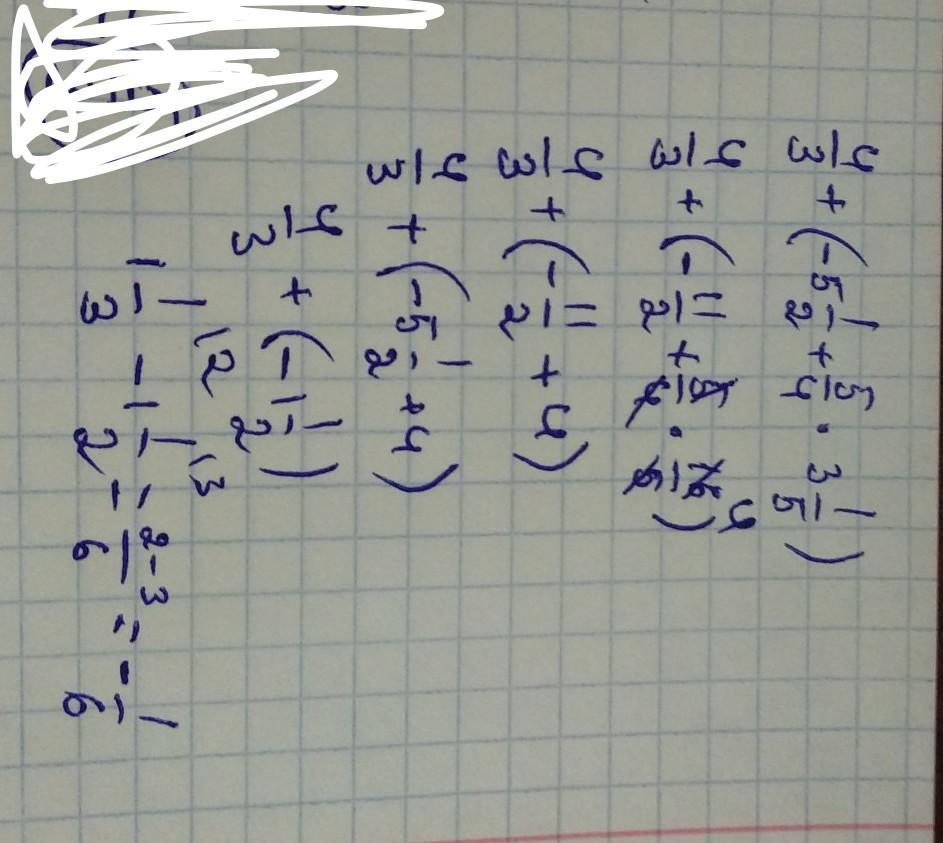 4/3 + (-5 1/2 + 5/4 · 3 1/5)
4/3 + (- 11/2 + 5/4 · 16/5 4)
4/3 + (- 11/2 + 4)
4/3 + (-5 1/2 + 4)
4/3 + (-1 1/2)
1 1/3 \2 - 1 1/2 \3 = 2-3/6 = - 1/6